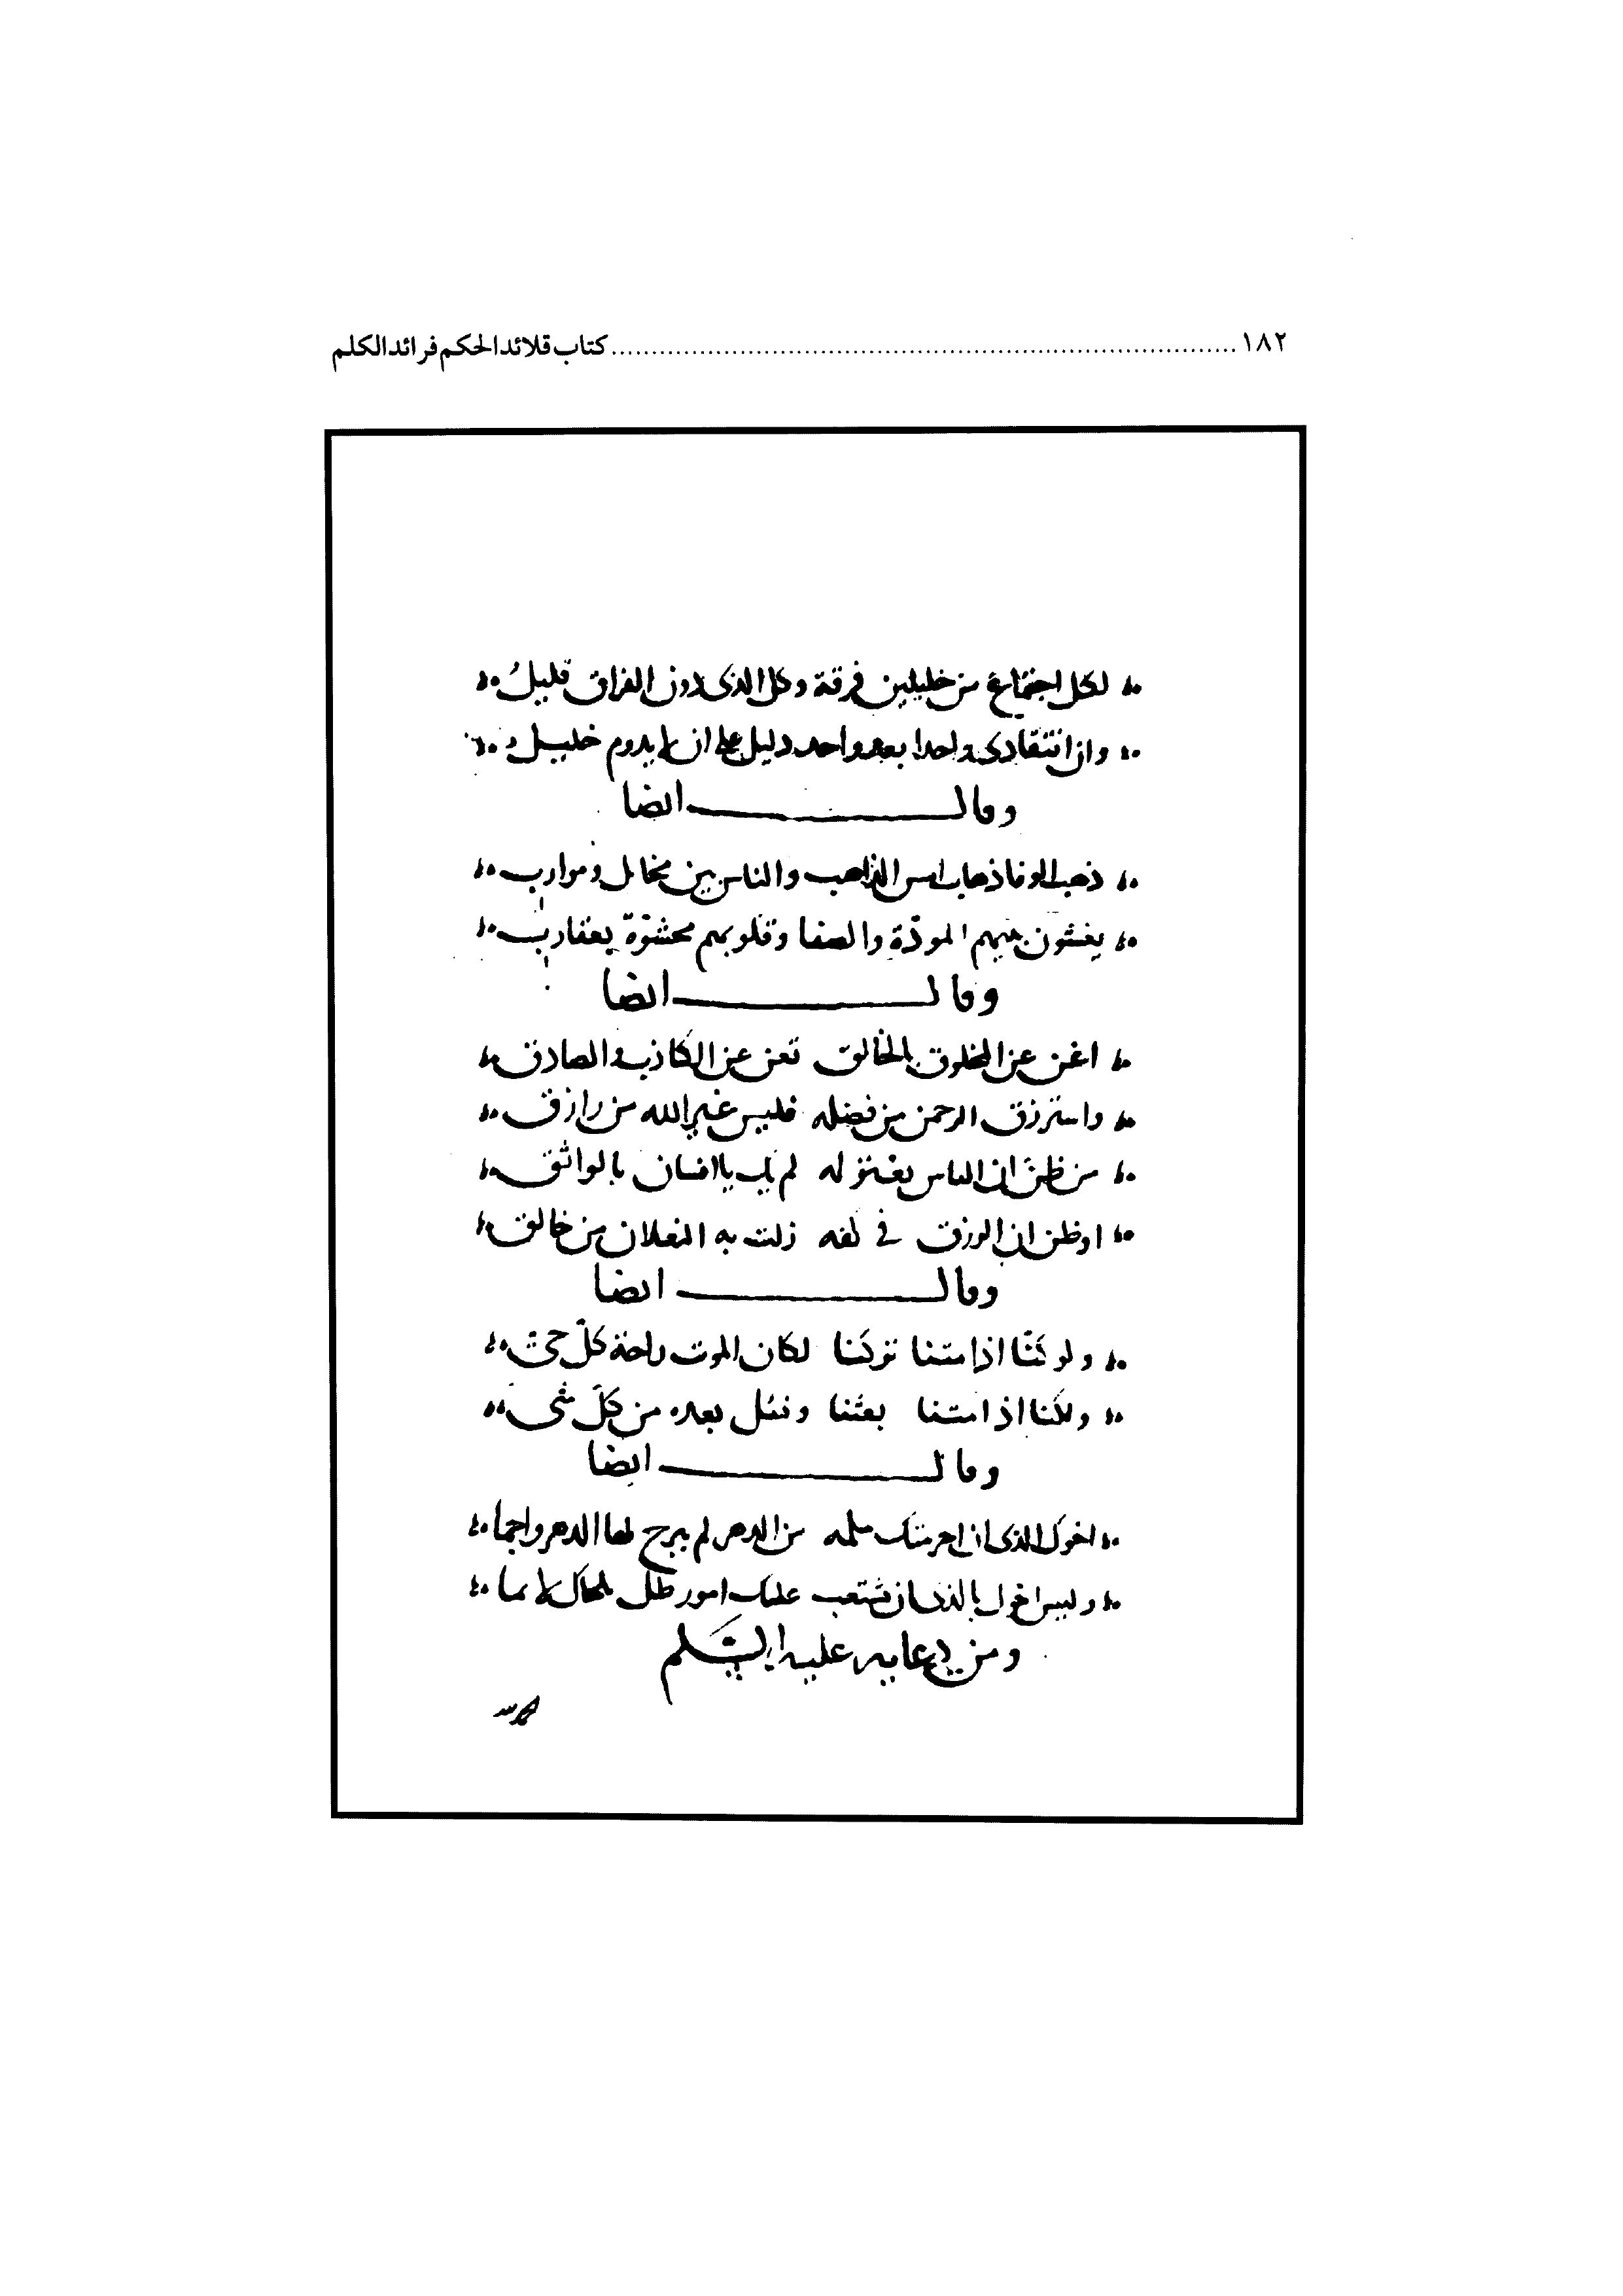 ١٨٢ ........ كتاب قلائد الحكم فرائد الكلم
لكل اجتماع من خليلين فرقة وكل الذى دون الفراق قليلُ
وان افتقادى واحدا بعد واحد دليل على ان لا يدوم خليل
وقال ايضا
ذهب الوفا ذهاب امس الذاهب والناس بين مخاتل وموارب
يغشون بينهم المودّة والصفا وقلوبهم محشوّة بعقارب
وقال ايضا
اغن عن المخلوق بالخالق تغن عن الكاذب والصادق
واسترزق الرحمن من فضله فليس غير الله من رازق
من ظن ان الناس يغنونه لم يك يا انسان بالواثق
او ظن ان الرزق فى كفه زلت به النعلان من خالق
وقال ايضا
ولو كنّا اذا متنا تركنا لكان الموت راحة كلّ حىّ
ولكنا اذا متنا بعثنا ونسئل بعده من كلّ شى
وقال ايضا
اخوك الذى ان اجرضتك ملمه من الدهر لم يبرح لها الدهر واجما
وليس اخوك بالذى ان تشعبت عليك امور ظل يلحاك لائما
ومن دعائه عليه السّلم